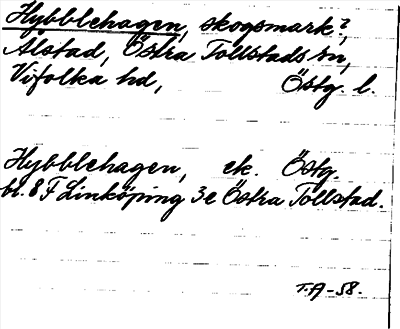 Hybblehagen, skogsmark?,
Alstad, Östra Tollstads sn,
Vifolka hd, Östg. l.
Hybblehagen, ek. Östg.
bl. 8 F Linköping 3e Östra Tollstad.
T.A-58.